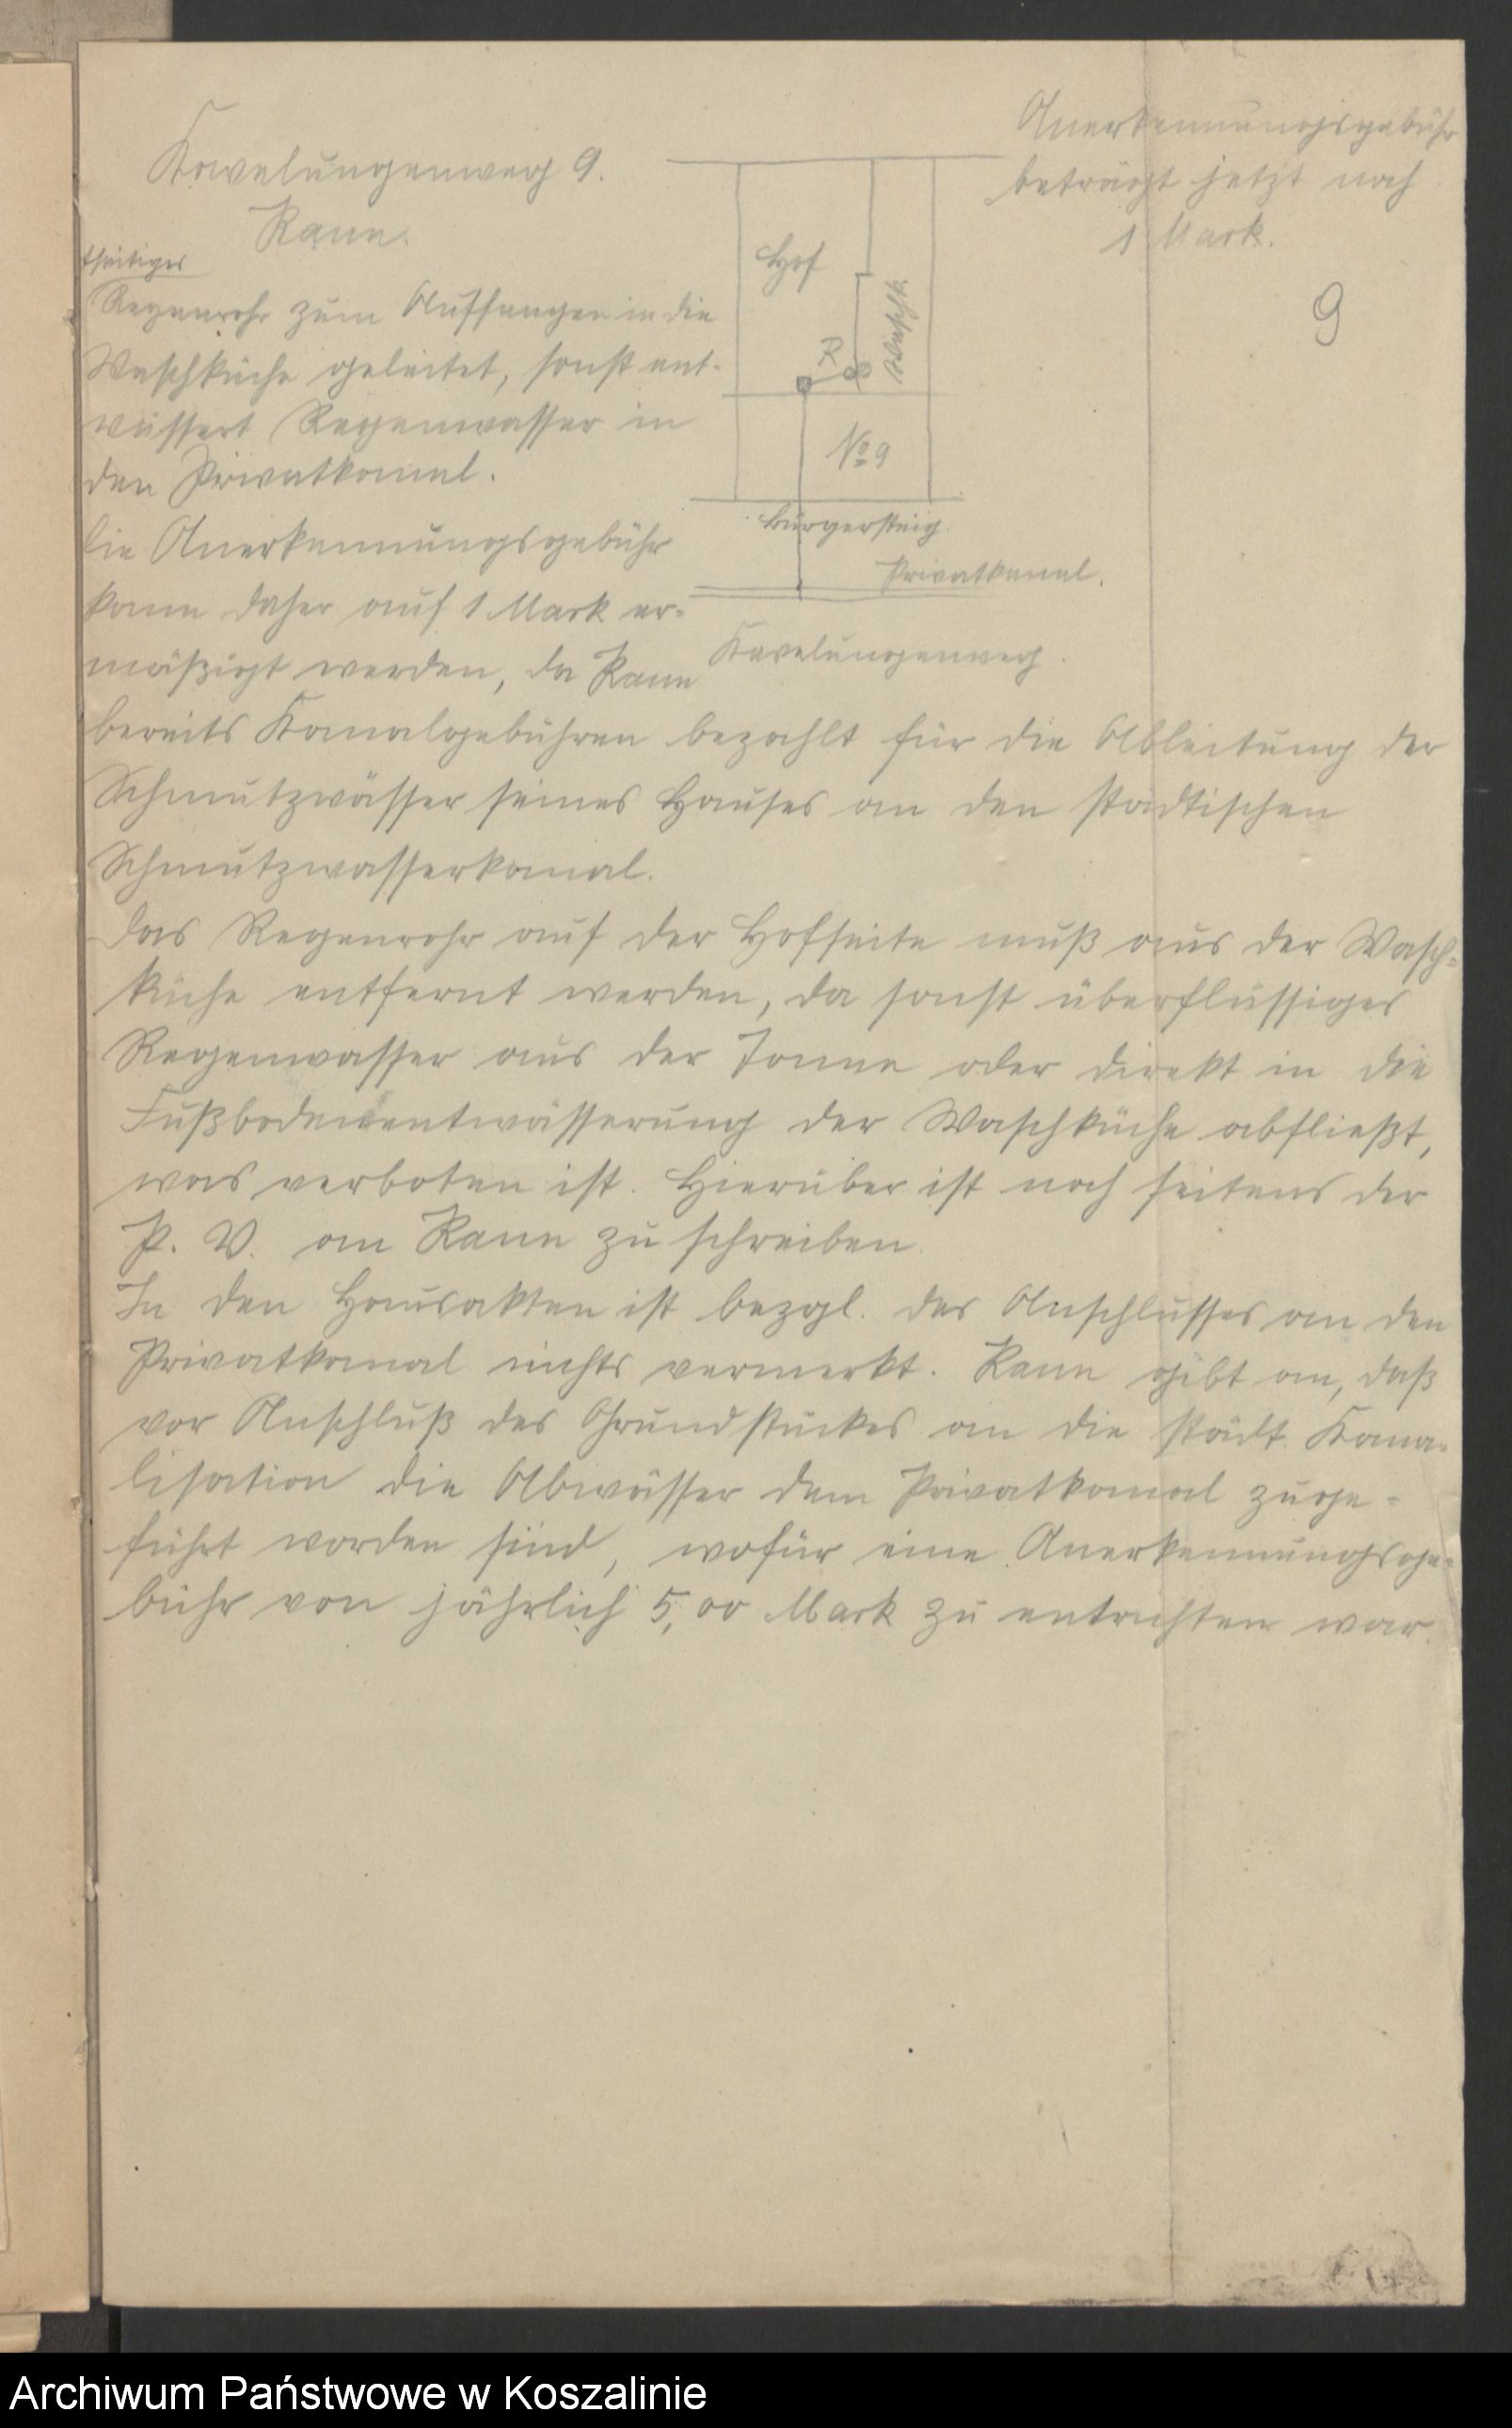 Anerkennungsgebühr
beträgt jetzt noch
1 Mark.
9
Kavelungenweg 9.
Rann.
Hof
Waschk.
R
№ 9
Bürgersteig.
Privatkanal.
Kavelungenweg.
Regenrohr zum Auffangen in die
Waschküche geleitet, sonst ent-
wässert Regenwasser in
den Privatkanal.
Die Anerkennungsgebühr
kann daher auf 1 Mark er-
mäßigt werden, da Rann
bereits Kanalgebühren bezahlt für die Ableitung der
Schmutzwässer seines Hauses an den städtischen
Schmutzwasserkanal.
Das Regenrohr auf der Hofseite muß aus der Wasch-
küche entfernt werden, da sonst überflüssiges
Regenwasser aus der Tonne oder direkt in die
Fußbodenentwässerung der Waschküche abfließt,
was verboten ist. Hierüber ist noch seitens der
P. V. an Rann zu schreiben.
In den Hausakten ist bezgl. des Anschlusses an den
Privatkanal nichts vermerkt. Rann gibt an, daß
vor Anschluß des Grundstückes an die städt. Kana-
lisation die Abwässer dem Privatkanal zuge-
führt worden sind, wofür eine Anerkennungsge-
bühr von jährlich 5,00 Mark zu entrichten war.
Archiwum Państwowe w Koszalinie